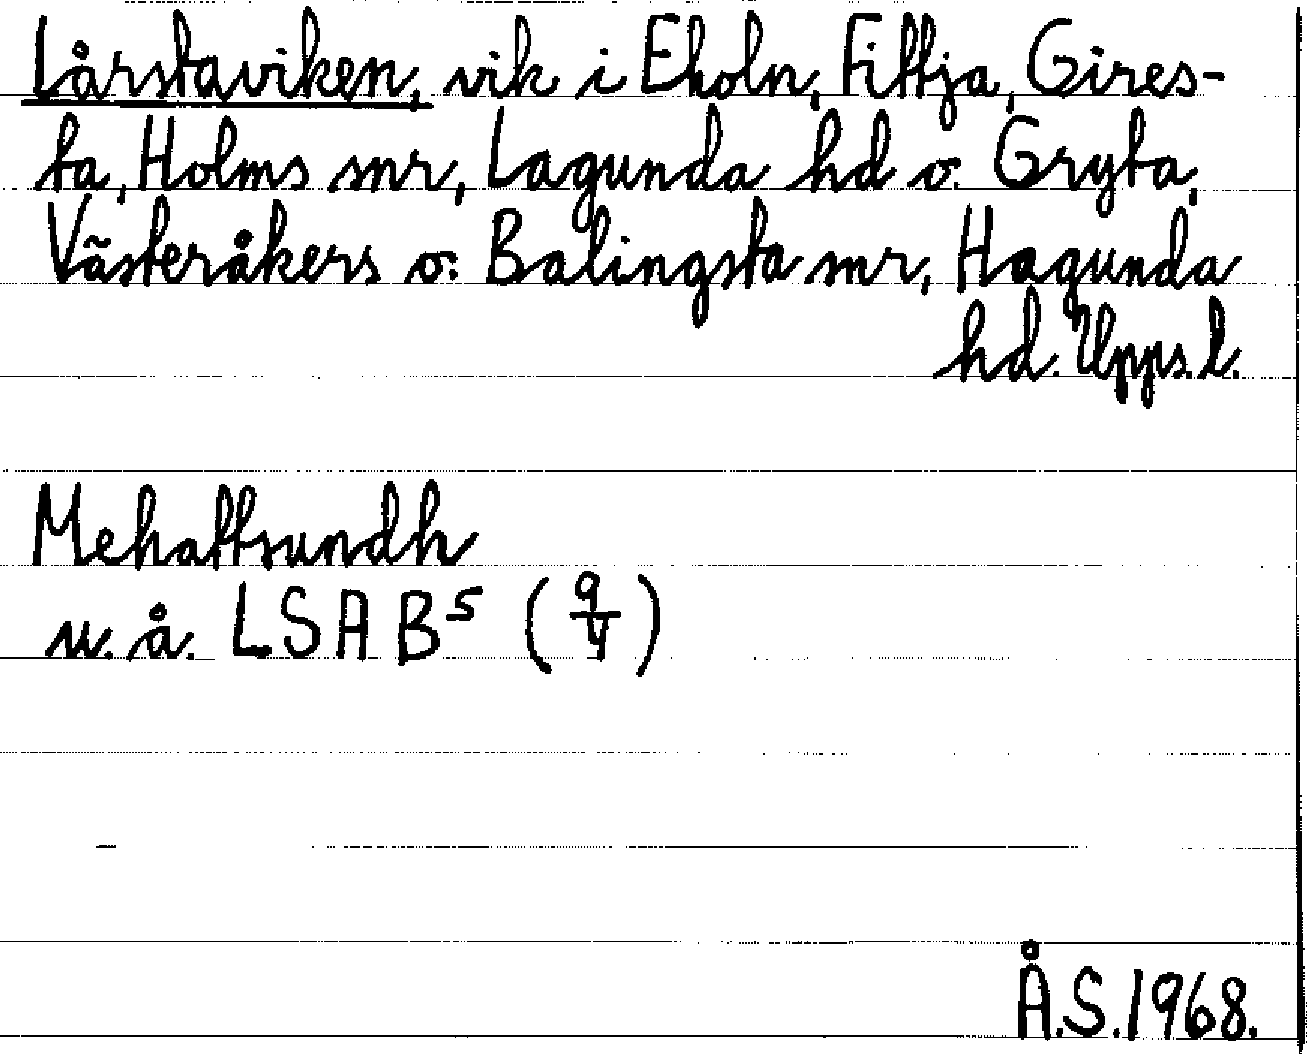 Lårstaviken, vik i Ekoln, Fittja, Gires-
ta, Holms snr, Lagunda hd o. Gryta,
Västeråkers o. Balingsta snr, Hagunda
hd. Upps.l.
Mehaffsundh
u.å. LSA B⁵ (9/4)
Å.S.1968.